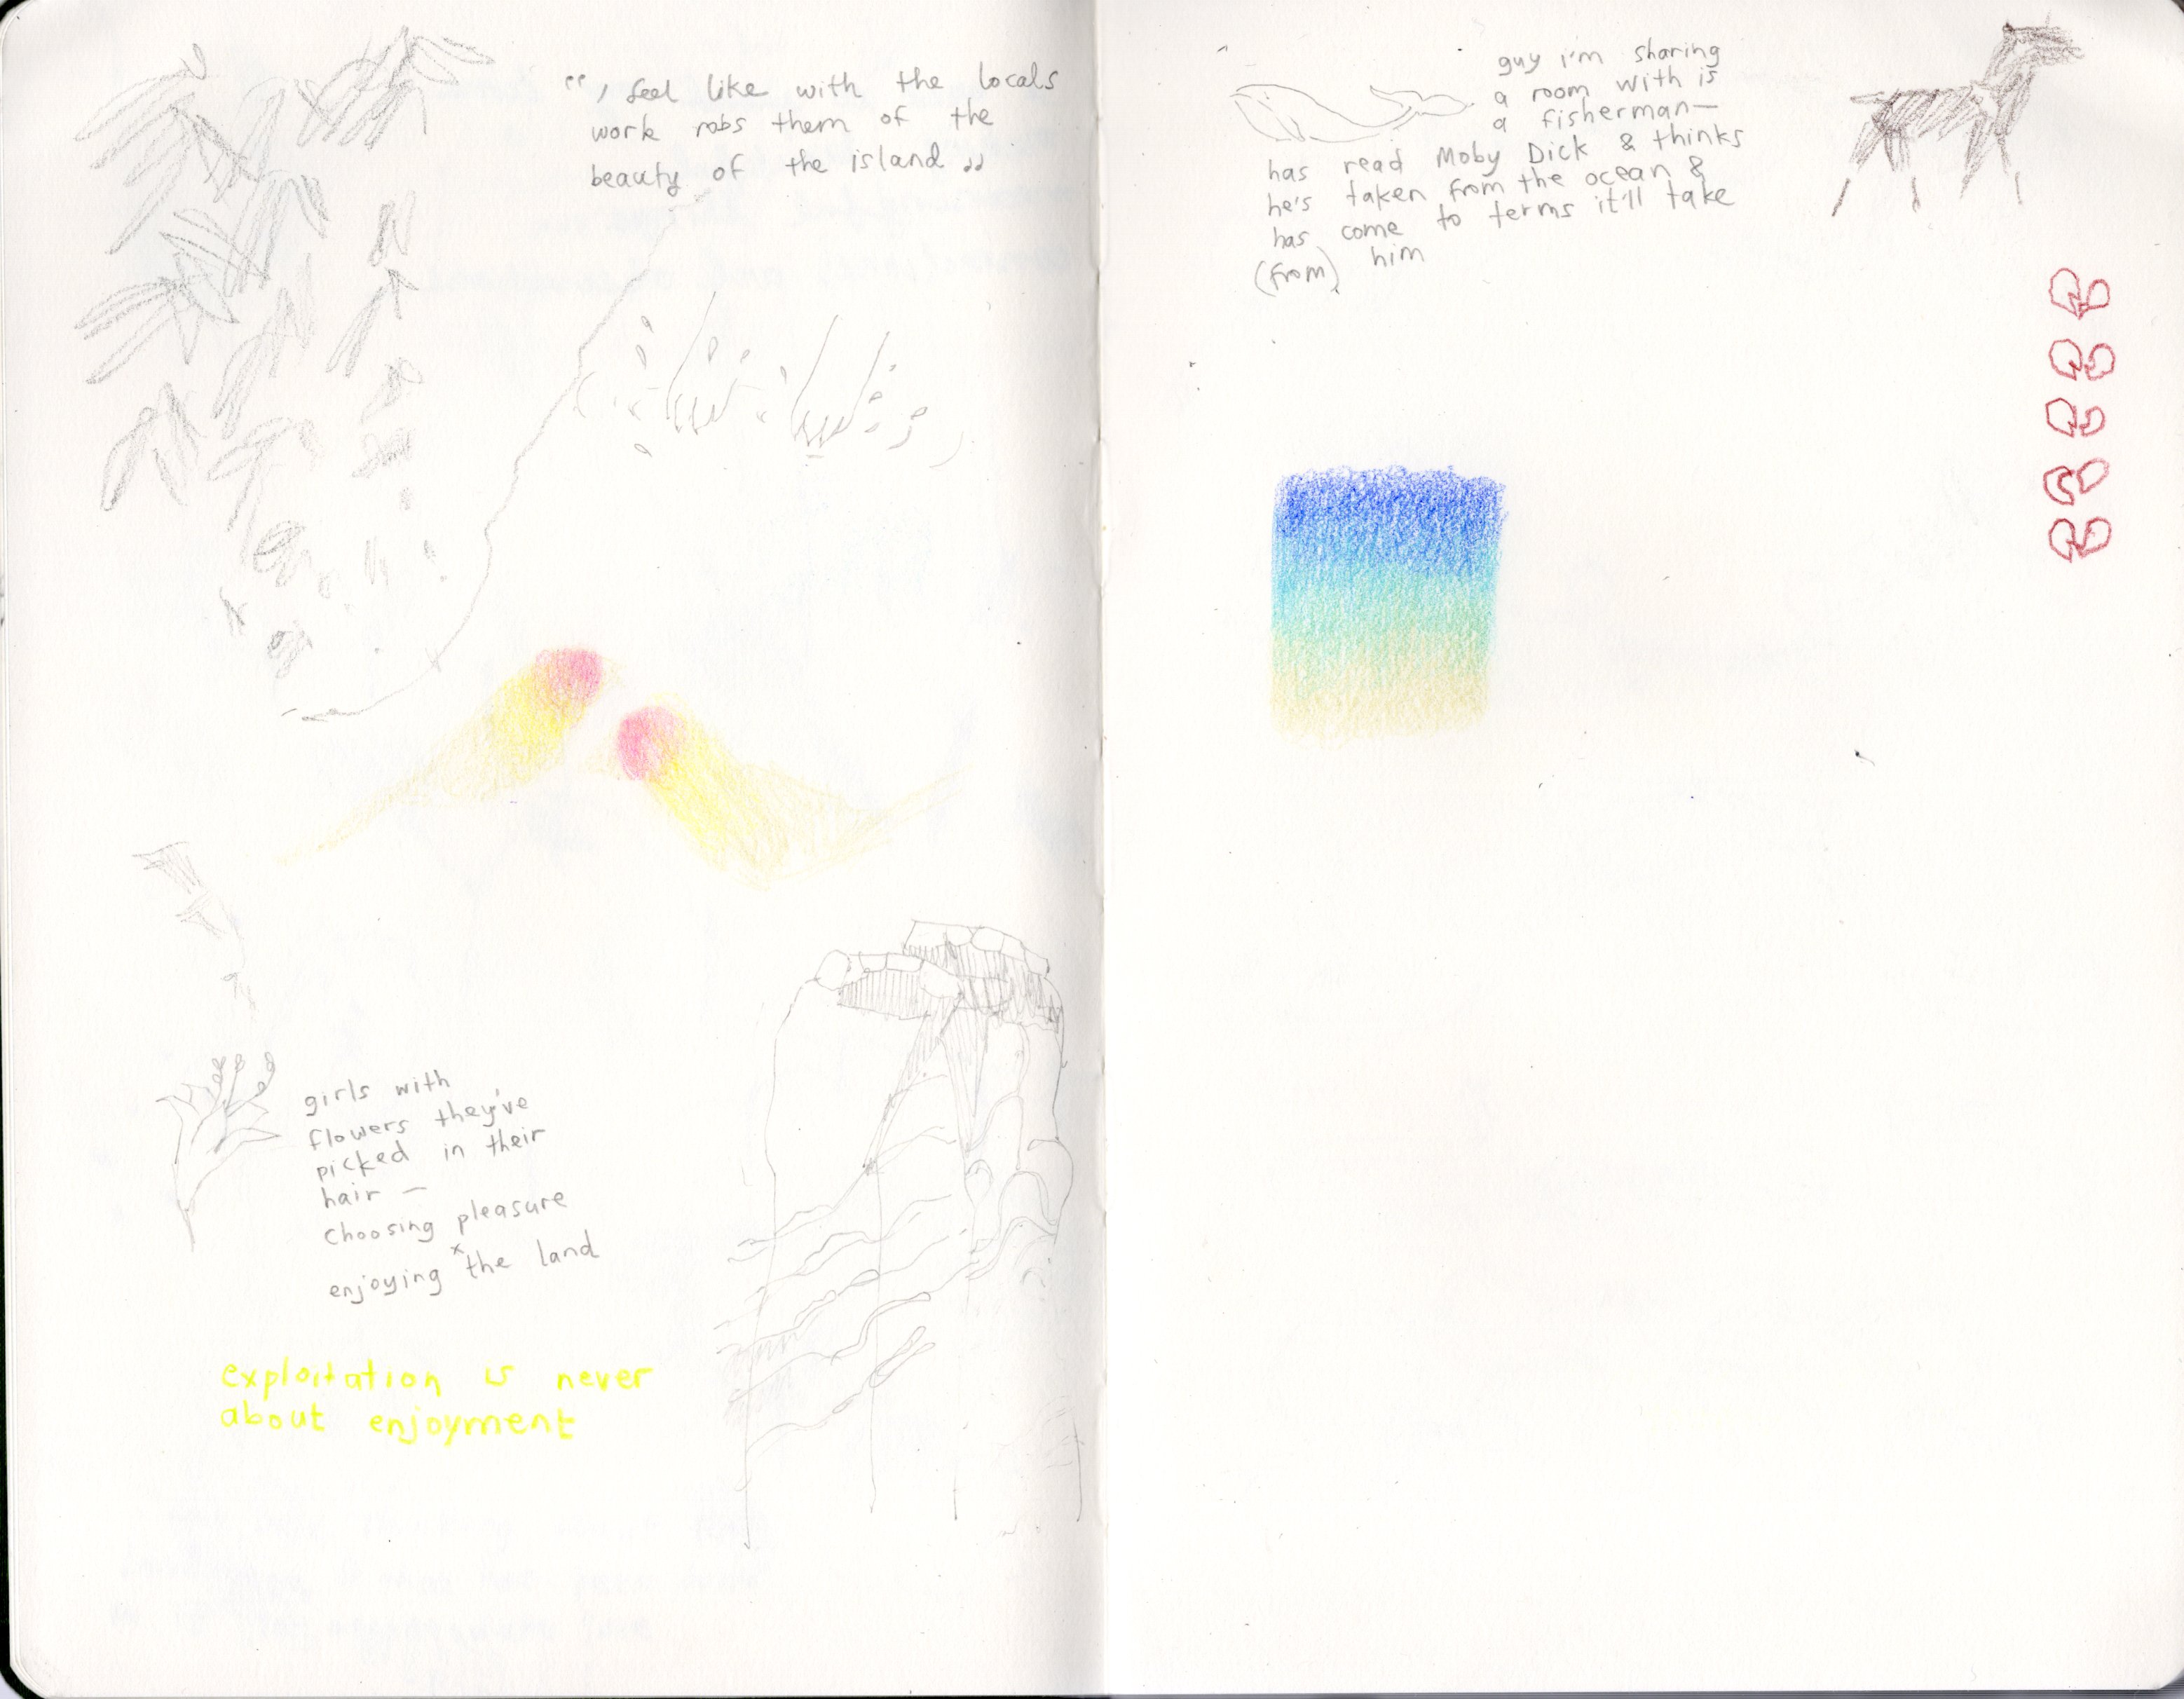 “I feel like with the locals
work robs them of the
beauty of the island”
girls with
flowers they've
picked in their
hair —
choosing pleasure
x
enjoying the land
exploitation is never
about enjoyment
guy i'm sharing
a room with is
a fisherman—
has read Moby Dick & thinks
he's taken from the ocean &
has come to terms it'll take
(from) him